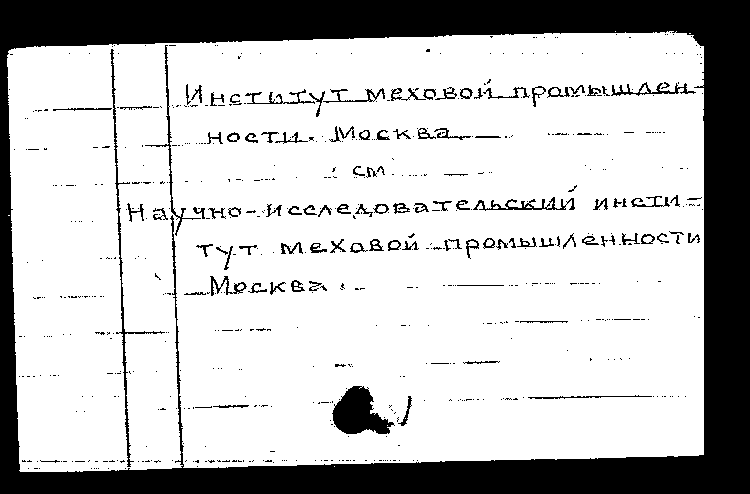 Институт меховой промышлен-
ности. Москва.
см
Научно-исследовательский инсти-
тут меховой промышленности
Москва.